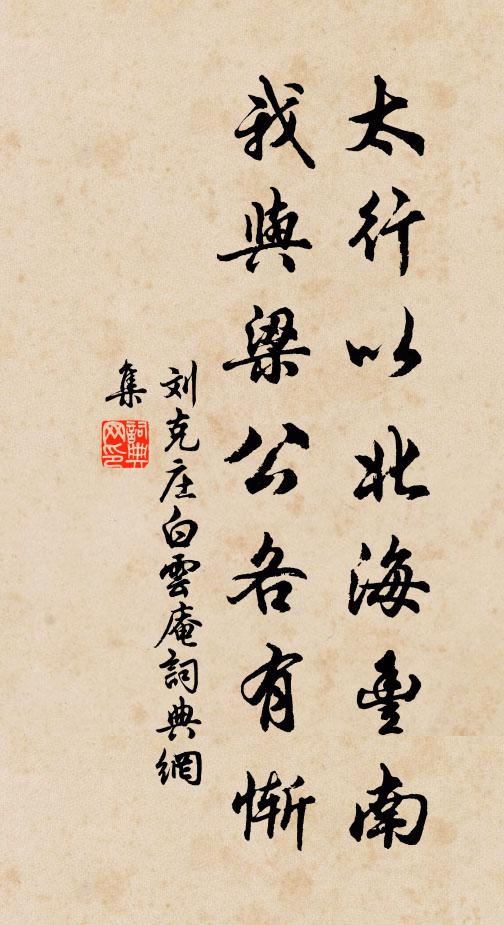 太行以北海豊南
我與梁公各有慚
刘克庄白雲庵詞典網
集
詞典网印